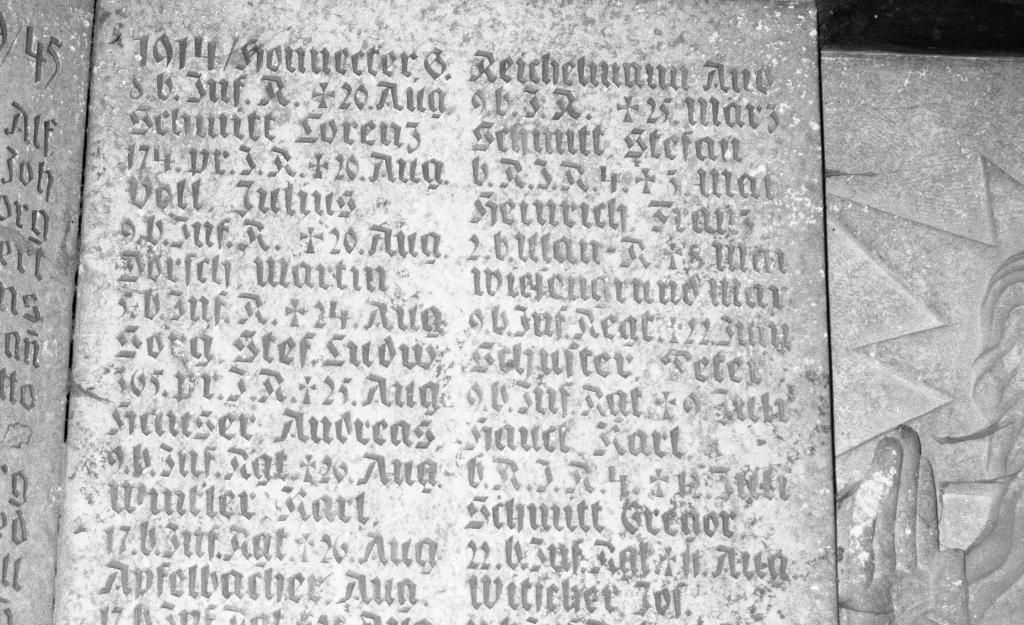 9/45
Alf
Joh
org
ert
ns
an̄
tto
g
1914/Honnecker G.
8.b.Inf.R. ✝20.Aug
Schmitt Lorenz
174.pr.J.R.✝20.Aug.
Voll Julius
9.b.Inf.R. ✝20.Aug.
Dorsch Martin
5.b.Inf.R. ✝24.Aug.
Sorg Stef.Ludw
pr.J.R.✝25.Aug.
Hauser Andreas
9.b.Inf.Rgt.✝26.Aug.
Winkler Karl
17.b.Inf.Rgt.✝26.Aug
Apfelbacher Aug
Reichelmann And
9.b.J.R. ✝25.März
Schmitt Stefan
b.R.J.R 4.✝3.Mai
Heinrich Franz
2.b.Ulan-R ✝8.Mai
Wiesengrund Mar.
9.b.Inf.Regt.✝22.Juni
Schuster Peter
9.b.Inf.Rgt.✝9.Juli
Hauck Karl
b.R.J.R 4.✝ Juli
Schmitt Gregor
22.b.Inf.Rgt.✝11.Aug
Witscher Jos.